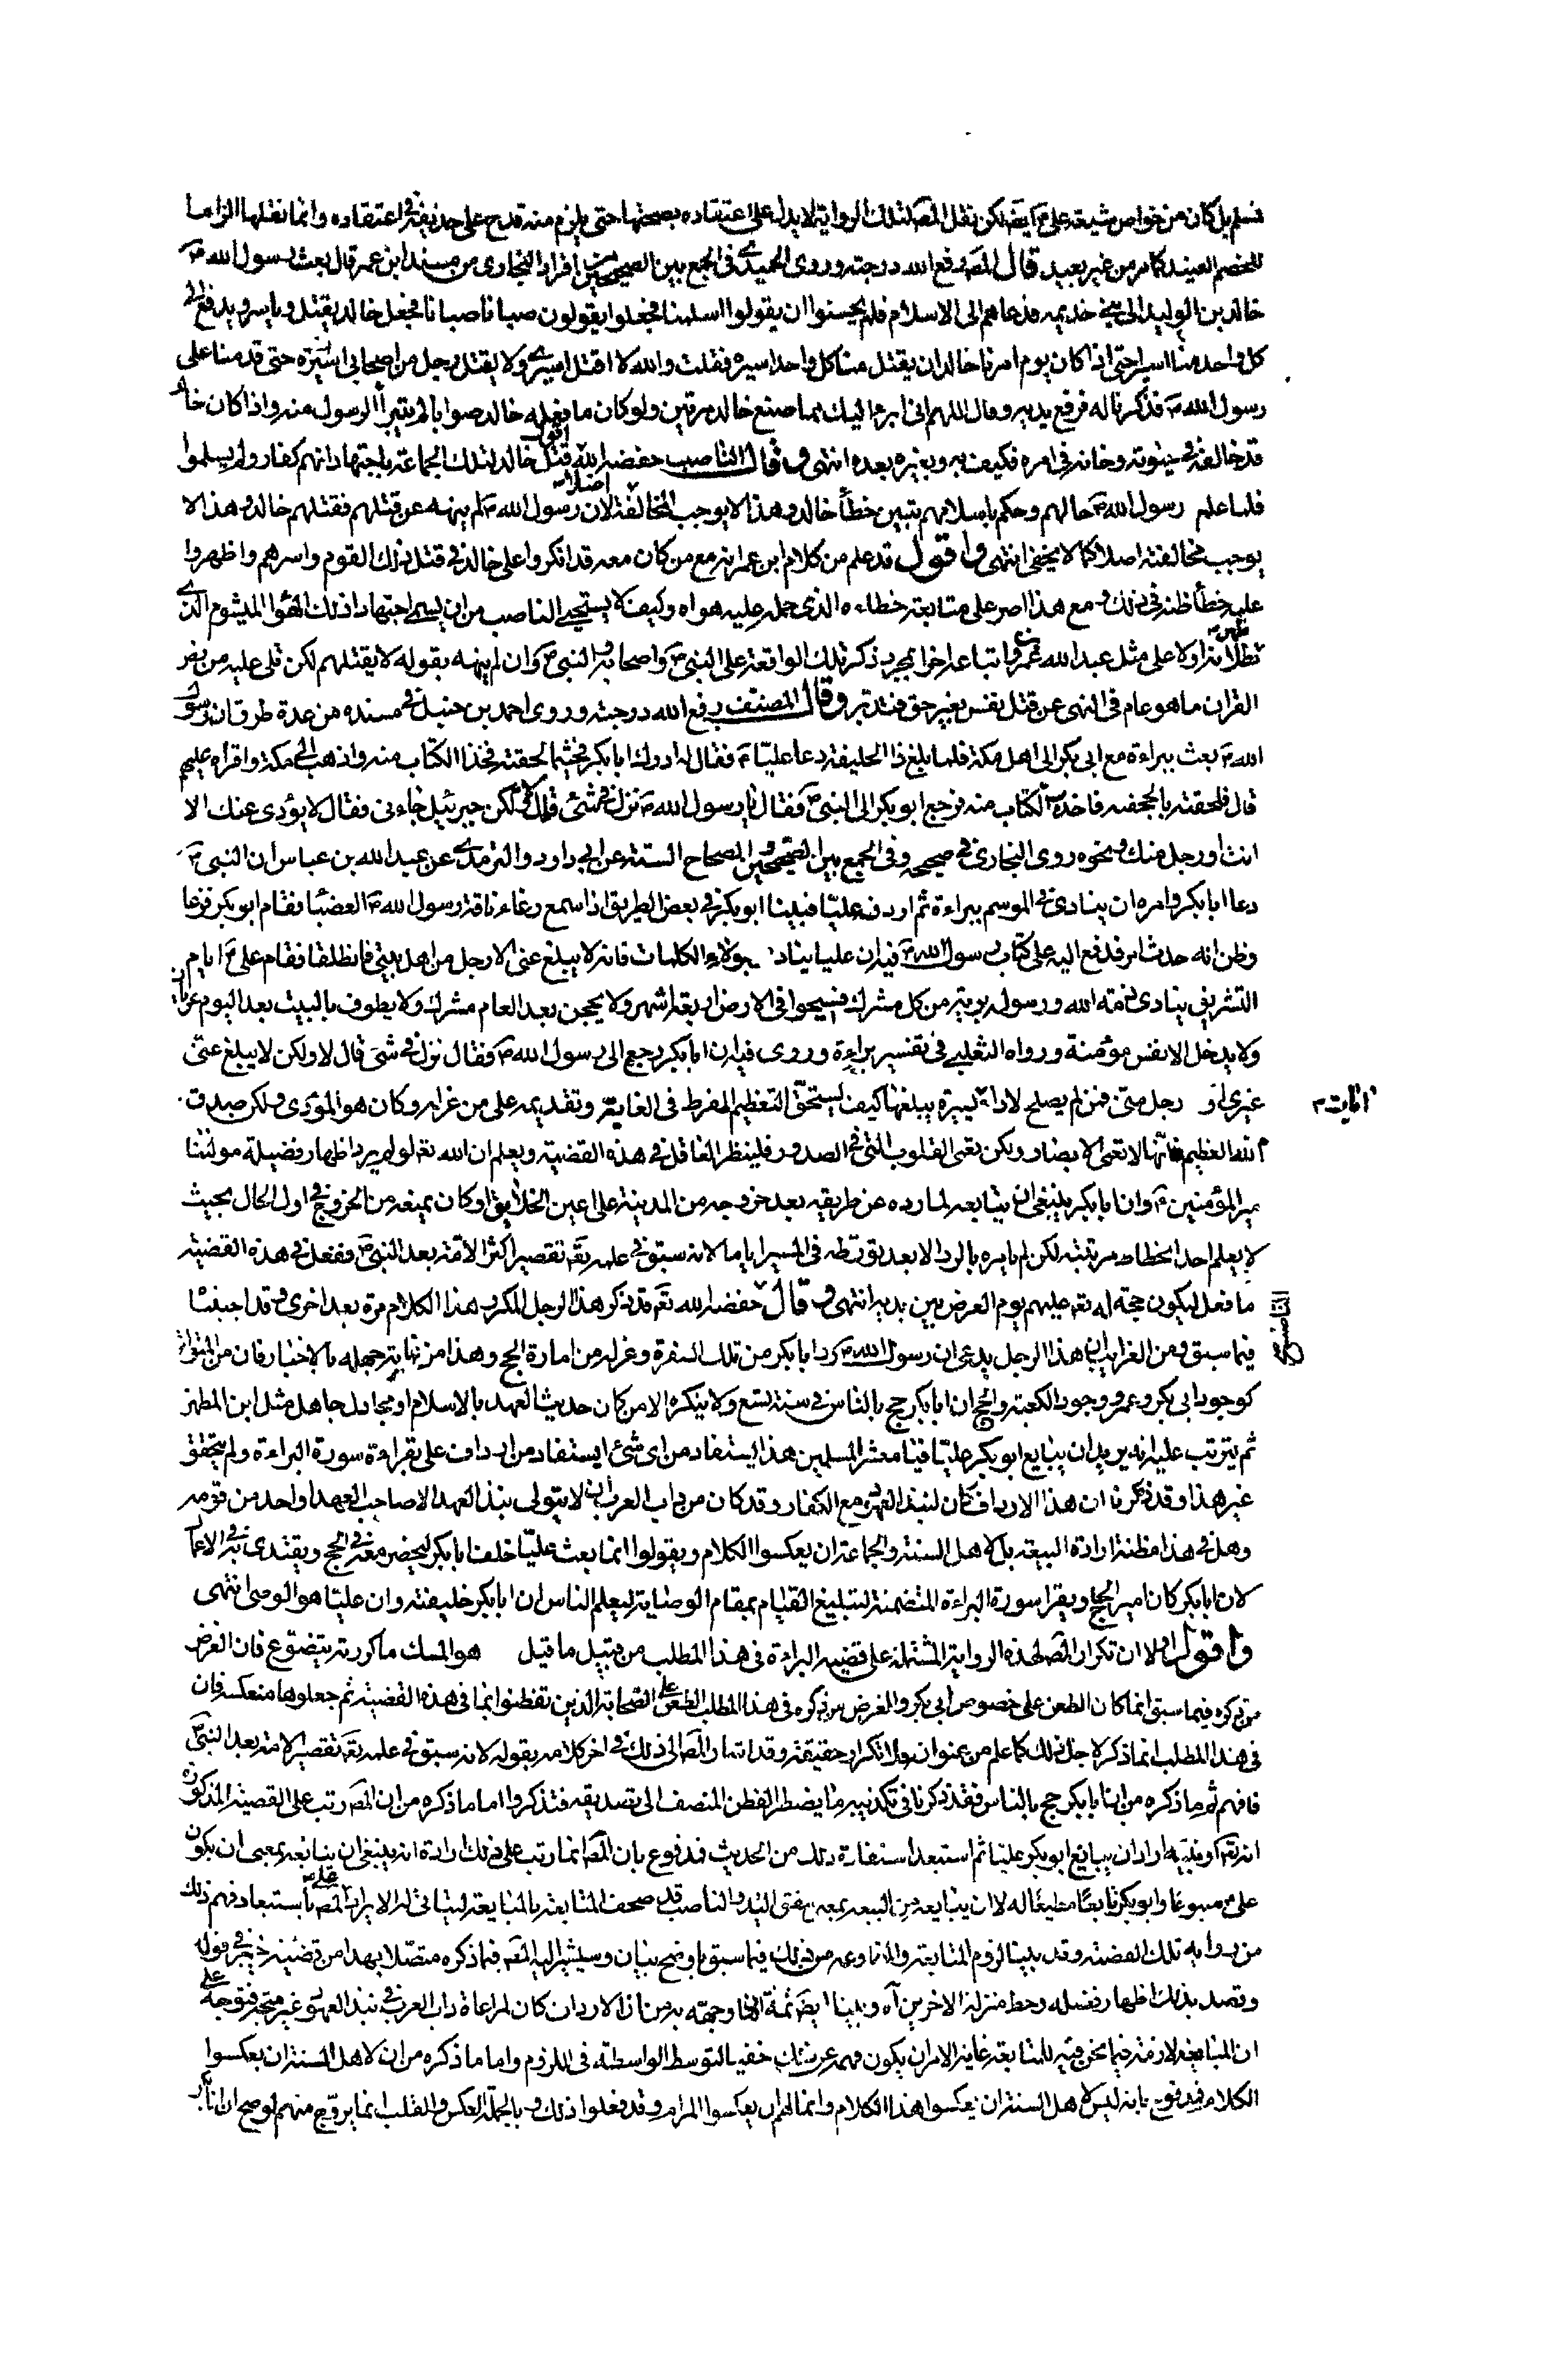 نسلم بل كان من خواص شيعة علي ع ايضا لكن نقل المص لتلك الرواية لا يدل على اعتقاده بصحتها حتى يلزم منه قدح على حذيفة في اعتقاده وانما نقلها الزاما
للخصم العنيد كما مر من غير بعيد قال المص رفع الله درجته وروى الحميدي في الجمع بين الصحيحين من افراد البخاري من مسند ابن عمر قال بعث رسول الله ص
خالد بن الوليد الى بني خذيمه فدعاهم الى الاسلام فلم يحسنوا ان يقولوا اسلمنا فجعلوا يقولون صبانا صبانا فجعل خالد يقتل وياسر ويدفع الى
كل واحد منا اسيرا حتى اذا كان يوم امرنا خالد ان يقتل منا كل واحد اسيره فقلت والله لا اقتل اسيري ولا يقتل رجل من اصحابي اسيره حتى قدمنا على
رسول الله ص فذكرنا له فرفع يديه وقال اللهم اني ابرء اليك مما صنع خالد مرتين ولو كان ما فعله خالد صوابا لم يتبرأ الرسول منه واذا كان خالد
قد خالفه في حيوته وخانه في امره فكيف به وبغيره بعده انتهى وقال الناصب خفضه الله اقول قتل خالد لتلك الجماعة باجتهاد انهم كفار ولم يسلموا
فلما علم رسول الله ص حالهم وحكم باسلامهم تبين خطأ خالد وهذا لا يوجب المخالفة اصلا لان رسول الله ص لم ينهه عن قتلهم فقتلهم خالد وهذا لا
يوجب مخالفته اصلا كما لا يخفى انتهى واقول قد علم من كلام ابن عمر انه مع من كان معه قد انكروا على خالد في قتل ذلك القوم واسرهم واظهروا
عليه خطأ ظنه في ذلك ومع هذا اصر على متابعة خطاءه الذي حمله عليه هواه وكيف لا يستحيي الناصب من ان يسمي اجتهادا ذلك الهوا الميشوم الذي
ظهر بطلانه اولا على مثل عبد الله بن عمر واتباعه اخرا بمجرد ذكر تلك الواقعة على النبي ص واصحابه والنبي ص وان لم ينهه بقوله لا يقتلهم لكن تلى عليه من
القران ما هو عام في النهي عن قتل نفس بغير حق فتدبر وقال المصنف رفع الله درجته وروى احمد بن حنبل في مسنده من عدة طرق ان رسول
الله ص بعث ببراءة مع ابي بكر الى اهل مكة فلما بلغ ذا الحليفة دعا عليا ع فقال له ادرك ابا بكر فحيثما لحقته فخذ الكتاب منه واذهب الى مكة واقراه عليهم
قال فلحقته بالجحفه فاخذت الكتاب منه فرجع ابو بكر الى النبي ص فقال يا رسول الله ص نزل في شئ قال لا ولكن جبرئيل جاءني فقال لا يؤدي عنك الا
انت او رجل منك ونحوه روى البخاري في صحيحه وفي الجمع بين الصحيحين الصحاح الستة عن ابي داود والترمذي عن عبد الله بن عباس ان النبي ص
دعا ابا بكر وامره ان ينادي في الموسم ببراءة ثم اردفه عليا فبينا ابو بكر في بعض الطريق اذ سمع رغاء ناقة رسول الله ص العضبا فقام ابو بكر فزعا
وظن انه حدث امر فدفع اليه علي كتاب رسول الله ص فيه ان عليا ينادي بهولاء الكلمات فانه لا يبلغ عني الا رجل من اهل بيتي فانطلقا فقام علي ع ايام
التشريق ينادي ذمة الله ورسوله بريئة من كل مشرك فسيحوا في الارض اربعة اشهر ولا يحجن بعد العام مشرك ولا يطوف بالبيت بعد اليوم عريان
ولا يدخل الا نفس مؤمنة ورواه الثعلبي في تفسير براءة وروى فيه ان ابا بكر رجع الى رسول الله ص فقال نزل في شئ قال لا ولكن لا يبلغ عني
غيري او رجل مني فمن لم يصلح لاداء ايات يسيرة يبلغها كيف يستحق التعظيم المفرط في الغاية وتقديمه على من عزله وكان هو المؤدي ولكن صدق
الله العظيم فانها لا تعمى الابصار ولكن تعمى القلوب التي في الصدور فلينظر العاقل في هذه القضية ويعلم ان الله تع لو لم يرد اظهار فضيلة مولانا
امير المؤمنين ع وان ابا بكر ينبغي ان يتابعه لما رده عن طريقه بعد خروجه من المدينة على اعين الخلايق او كان يمنعه من الخروج في اول الحال بحيث
لا يعلم احد انحطاط مرتبته لكن لم يامره بالرد الا بعد تورطه في المسير اياما لانه سبق في علمه تع تقصير اكثر الامة بعد النبي ص ففعل في هذه القضية
ما فعل ليكون حجة له تع عليهم يوم العرض بين يديه انتهى وقال الناصب خفضه الله تع قد ذكر هذا الرجل المكرر هذا الكلام مرة بعد اخرى وقد اجبنا
فيما سبق ومن الغرايب ان هذا الرجل يدعي ان رسول الله ص رد ابا بكر من تلك السفرة وعزله من امارة الحج وهذا من نهاية جهله بالاخبار فان من المتواتر
كوجود ابي بكر وعمر ووجود الكعبة والحج ان ابا بكر حج بالناس في سنة تسع ولا ينكره الا من كان حديث العهد بالاسلام او مجادل جاهل مثل ابن المطهر
ثم يترتب عليه انه يريد ان يبايع ابو بكر عليا فيا معشر المسلمين هذا يستفاد من اي شئ ايستفاد من ارداف علي بقراءة سورة البراءة ولم يتحقق
غير هذا وقد ذكرنا ان هذا الارداف كان لنبذ العهود مع الكفار وقد كان من داب العرب ان لا يتولى نبذ العهد الا صاحب العهد او احد من قومه
وهل في هذا مظنة ارادة البيعة بل لاهل السنة والجماعة ان يعكسوا الكلام ويقولوا انما بعث عليا خلف ابا بكر ليحضر معه في الحج ويقتدي به في الاعمال
لان ابا بكر كان امير الحاج ويقرا سورة البراءة المتضمنة لتبليغ القيام بمقام الوصاية ليعلم الناس ان ابا بكر خليفته وان عليا هو الوصي انتهى
واقول اولا ان تكرار المص لهذه الرواية المشتملة على قضية البراءة في هذا المطلب من قبيل ما قيل هو المسك ما كررته يتضوع فان الغرض
من ذكره فيما سبق انما كان الطعن على خصوص ابي بكر والغرض من ذكره في هذا المطلب الطعن على الصحابة الذين تفطنوا انما في هذه القضية ثم جعلوها منعكسة فان
في هذا المطلب انما ذكر لاجل ذلك كما علم من عنوان فلا تكرار حقيقة وقد اشار المص الى ذلك في اخر كلامه بقوله لانه سبق في علمه تع تقصير الامة بعد النبي ص
فافهم ثم ما ذكره من ان ابا بكر حج بالناس فقد ذكرنا في تكذيبه ما يضطر الفطن المنصف الى تصديقه فتذكر واما ما ذكره من ان المص رتب على القصية المذكورة
انه تع او نبيه اراد ان يبايع ابو بكر عليا ثم استبعد استفادة ذلك من الحديث فمدفوع بان المص انما رتب على ذلك ارادة انه ينبغي ان يتابعه بمعنى ان يكون
علي ع متبوعا وابو بكر تابعا مطيعا له لا ان يبايعه من البيعة بمعنى صفق اليد والناصب قد صحف المتابعة بالمبايعة ليتاتى له الايراد على المص باستبعاد فهم ذلك
من رواية تلك القضية وقد بينا لزوم المتابعة فيما سبق باوضح بيان وسيشير اليه المص فيما ذكره متصلا بهذا من قضية خيبر في قوله
وقصد بذلك اظهار فضله وحط منزلة الاخرين اه وبينا ايضا ثمة ان ما وجهه به من ان الارداف كان لمراعاة داب العرب في نبذ العهود غير متجه فتوجه على
ان المتابعة لازمة فيما نحن فيه غاية الامر ان يكون فهمه عن ذلك خفيا لتوسط الواسطة في اللزوم واما ما ذكره من ان لاهل السنة ان يعكسوا
الكلام فمدفوع بانه ليس لاهل السنة ان يعكسوا هذا الكلام وانما لهم ان يعكسوا المرام وقد فعلوا ذلك وبالجملة العكس والقلب انما يروج منهم لو صح ان ابا بكر